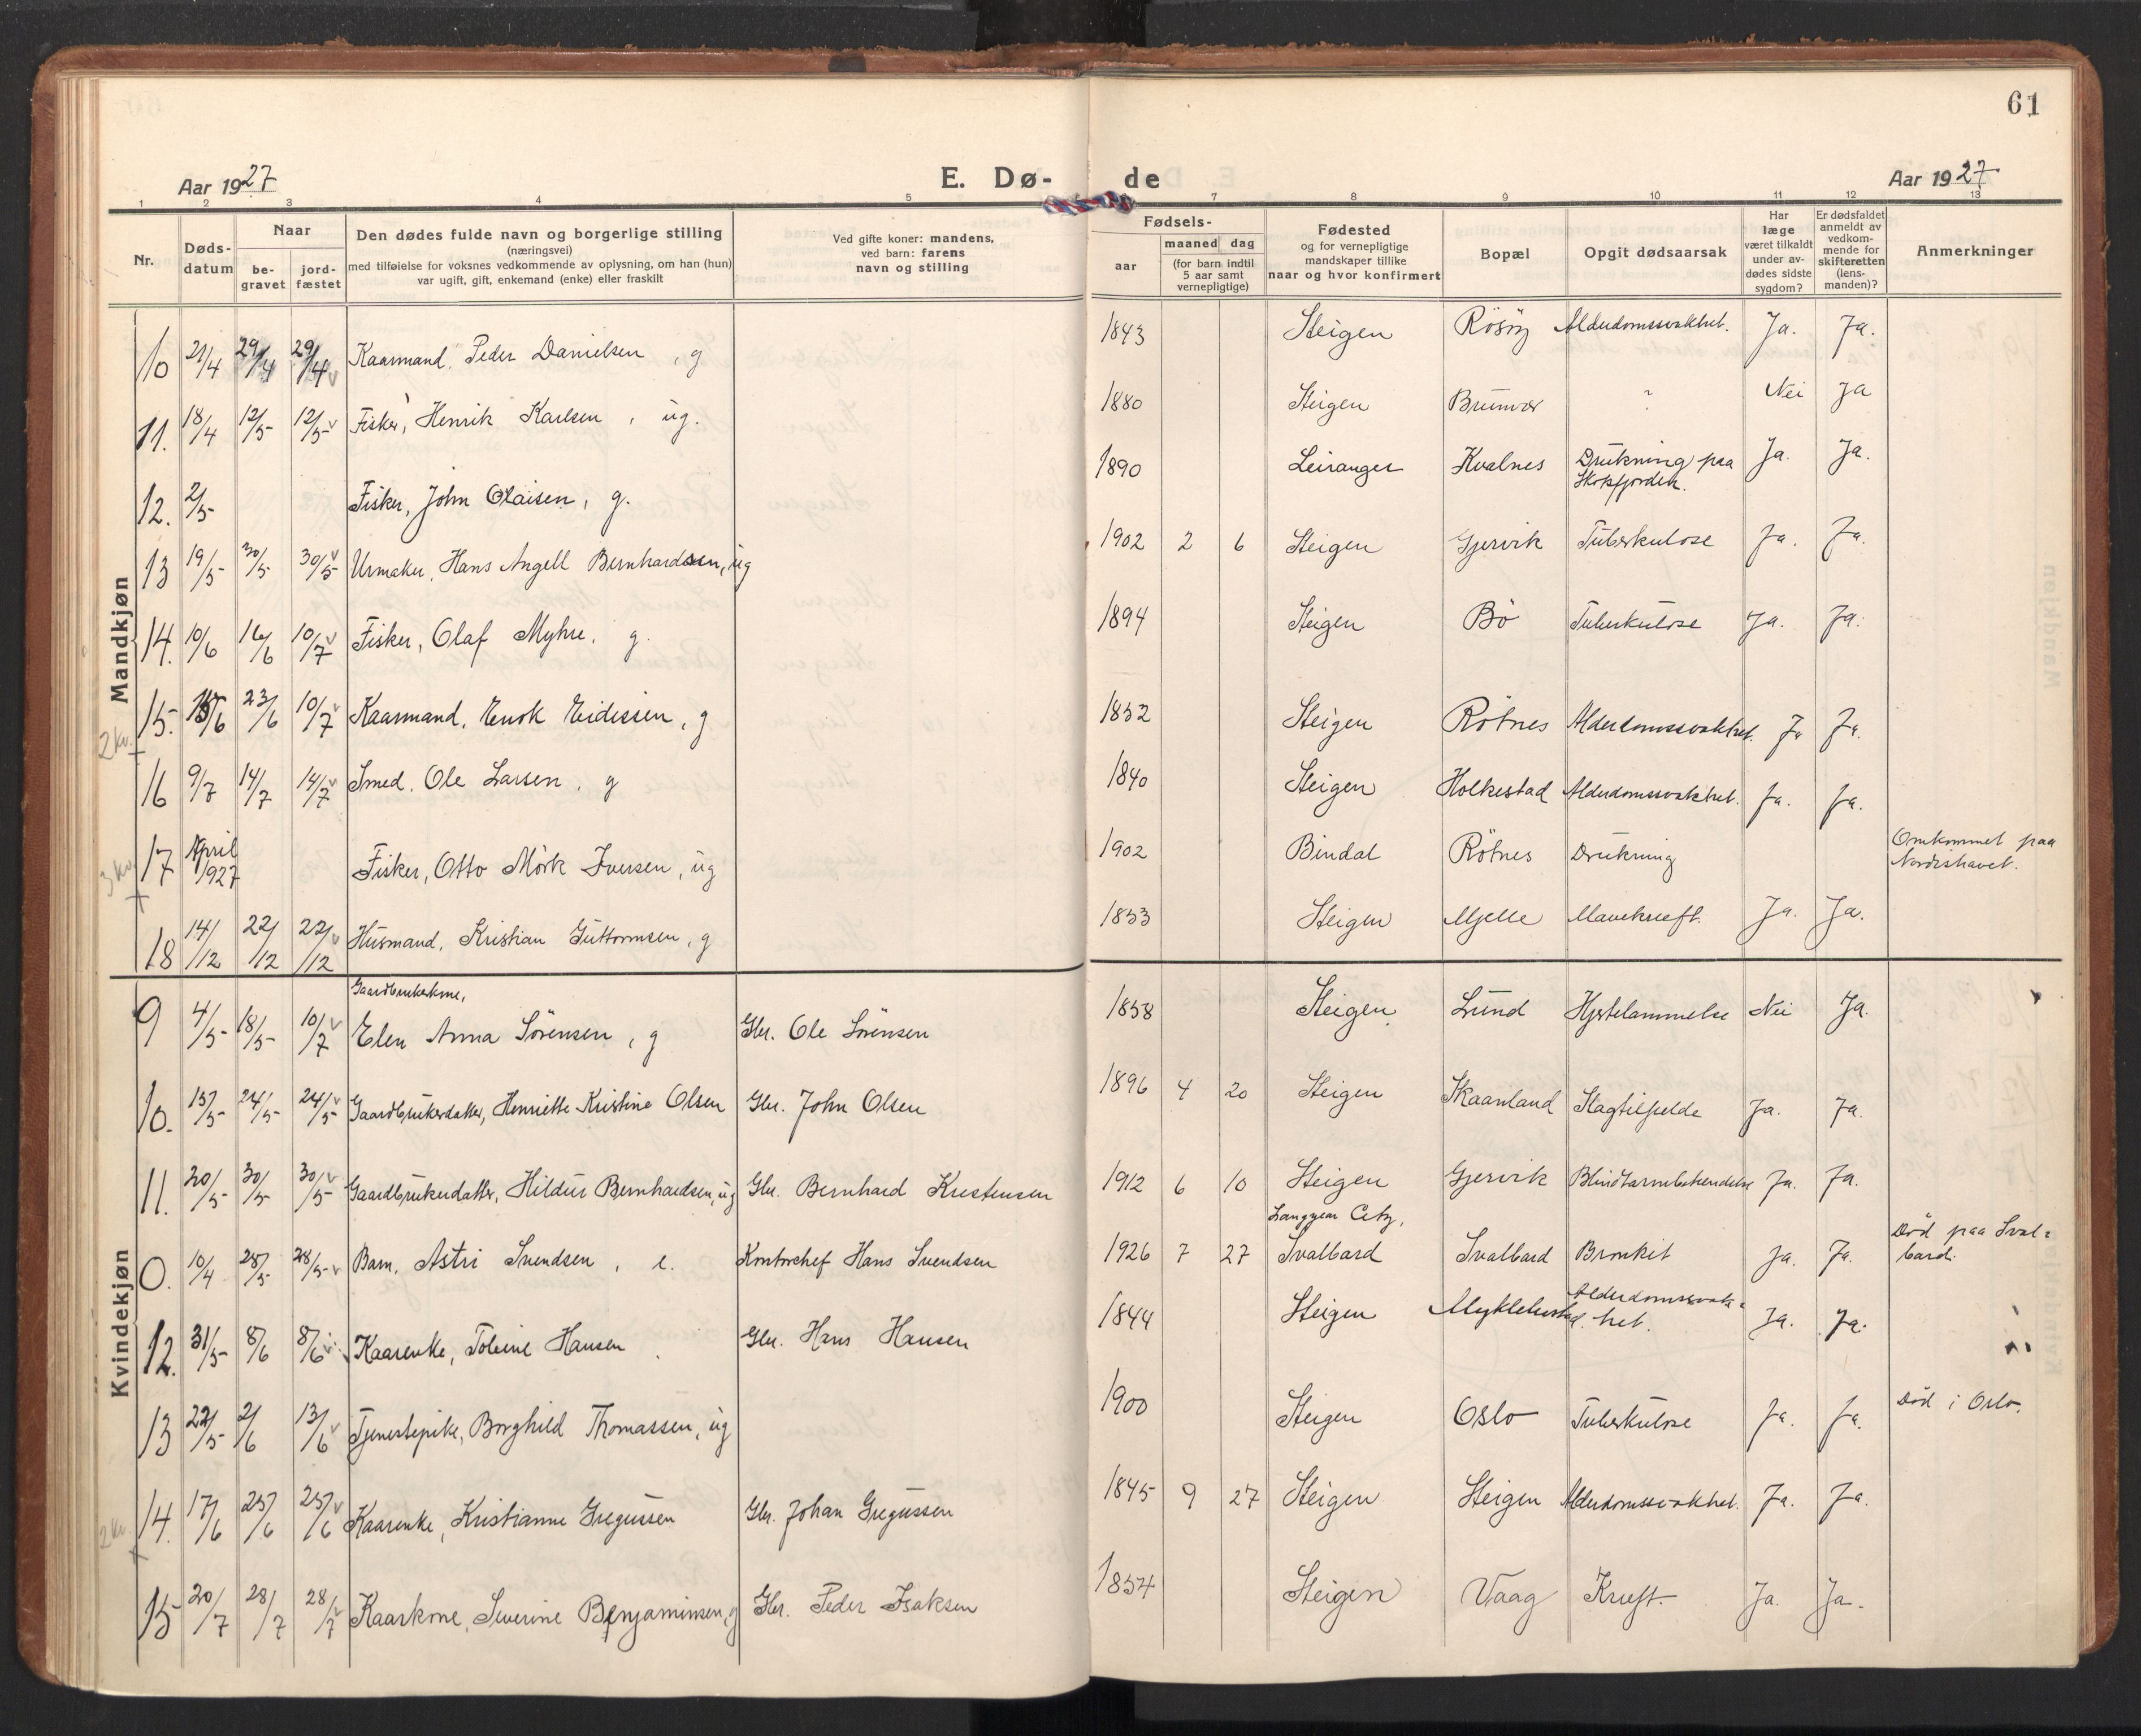 61
Aar 1927
E. Dø-
de
Aar 1927
1 2 3 4 5 7 8 9 10 11 12 13
Nr.
Døds-
datum
Naar
be-
gravet
jord-
fæstet
Den dødes fulde navn og borgerlige stilling
(næringsvei)
med tilføielse for voksnes vedkommende av oplysning, om han (hun)
var ugift, gift, enkemand (enke) eller fraskilt
Ved gifte koner: mandens,
ved barn: farens
navn og stilling
Fødsels-
aar
maaned dag
(for barn indtil
5 aar samt
vernepligtige)
Fødested
og for vernepligtige
mandskaper tillike
naar og hvor konfirmert
Bopæl
Opgit dødsaarsak
Har
læge
været tilkaldt
under av-
dødes sidste
sygdom?
Er dødsfaldet
anmeldt av
vedkom-
mende for
skifteretten
(lens-
manden)?
Anmerkninger
Mandkjøn
10 21/4 29/4 29/4 Kaarmand, Peder Danielsen, g 1843 Steigen Rösöy Alderdomssvakhet. Ja. Ja.
11. 18/4 12/5 12/5 Fisker, Henrik Karlsen, ug. 1880 Steigen Brunvær ? Nei Ja
12. 2/5 Fisker, John Olaisen, g. 1890 Leiranger Kvalnes Drukning paa Ja. Ja.
13 19/5 30/5 30/5 Urmaker, Hans Angell Bernhardsen, ug 1902 2 6 Steigen Gjervik Tuberkulose Ja. Ja.
14. 10/6 16/6 10/7 Fisker, Olaf Myhre, g. 1894 Steigen Bö Tuberkulose Ja. Ja.
15. 23/6 10/7 Kaarmand, Enok Eidissen, g 1852 Steigen Rötnes Alderdomssvakhet. Ja Ja.
2 kv.
16 9/7 14/7 14/7 Smed, Ole Larsen, g 1840 Steigen Holkestad Alderdomssvakhet. Ja. Ja.
17 April 1927 Fisker, Otto Mörk Iversen, ug 1902 Bindal Rötnes Drukning Omkommet paa
Nordishavet.
3 kv.
18 14/12 22/12 22/12 Husmand, Kristian Guttormsen, g 1853 Steigen Mjelle Mavekreeft. Ja. Ja.
Kvindekjøn
Gaardbrukerkone,
9 4/5 18/5 10/7 Elen Anna Sörensen, g Gbr. Ole Sörensen 1858 Steigen Lund Hjertelammelse Nei Ja.
10. 15/5 24/5 24/5 Gaardbrukerdatter, Henriette Kristine Olsen Gbr. John Olsen 1896 4 20 Steigen Skaanland Slagtilfelde Ja. Ja.
11. 20/5 30/5 30/5 Gaardbrukerdatter, Hildur Bernhardsen, ug Gbr. Bernhard Kristensen 1912 6 10 Steigen Gjervik Blindtarmbetændelse Ja. Ja.
Longyear City,
0. 10/4 28/5 28/5 Barn, Astri Svendsen, e. Kontorchef Hans Svendsen 1926 7 27 Svalbard Svalbard Bronkit Ja. Ja. Död paa Sval-
bard.
12. 31/5 8/6 8/6 Kaarenke, Toline Hansen Gbr. Hans Hansen 1844 Steigen Myklebostad. Alderdomssvak-
het. Ja. Ja.
13 22/5 2/6 13/6 Tjenestepike, Borghild Thomassen, ug 1900 Steigen Oslo Tuberkulose Ja. Ja. Död i Oslo.
14. 17/6 25/6 25/6 Kaarenke, Kristianne Gregussen Gbr. Johan Gregussen 1845 9 27 Steigen Steigen Alderdomssvakhet. Ja. Ja.
2 kv.
15 20/7 28/7 28/7 Kaarkone, Severine Benjaminsen, g Gbr. Peder Isaksen 1854 Steigen Vaag Kreft Ja. Ja.